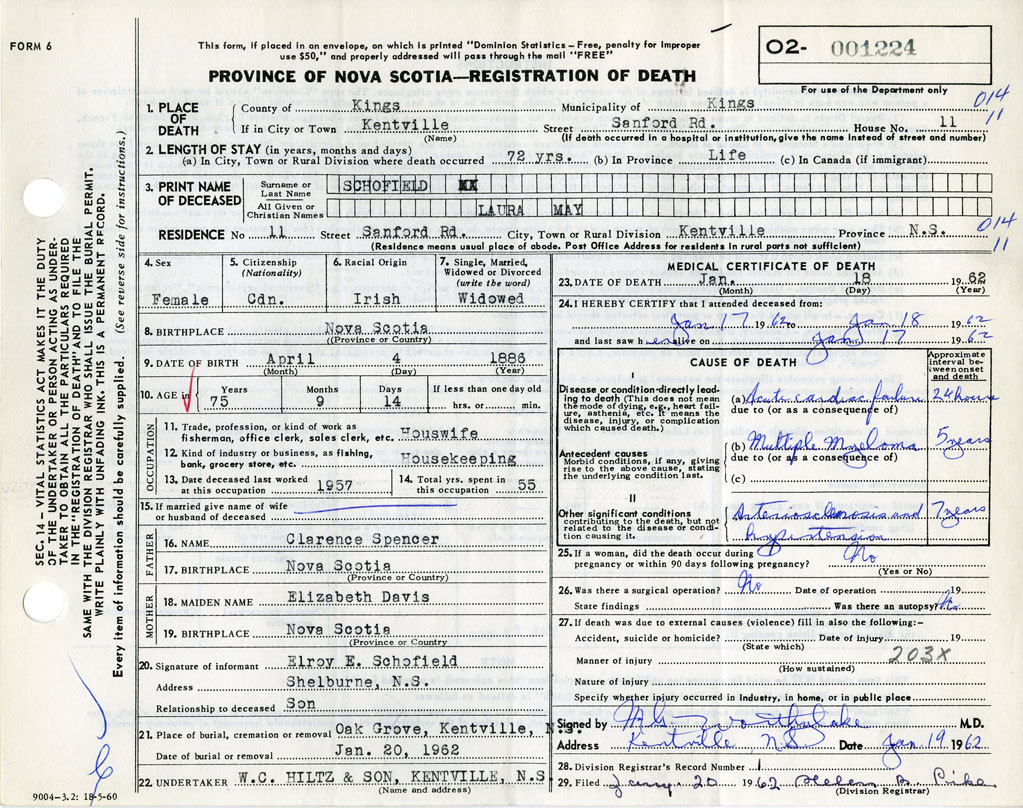 FORM 6
This form, if placed in an envelope, on which is printed "Dominion Statistics – Free, penalty for improper
use $50," and properly addressed will pass through the mail "FREE"
O2- 001224
For use of the Department only
PROVINCE OF NOVA SCOTIA—REGISTRATION OF DEATH
014
11
1. PLACE OF DEATH
County of Kings Municipality of Kings
If in City or Town Kentville Street Sanford Rd. House No. 11
(Name) (If death occurred in a hospital or institution, give the name instead of street and number)
2. LENGTH OF STAY (in years, months and days)
(a) In City, Town or Rural Division where death occurred 72 yrs. (b) In Province Life (c) In Canada (if immigrant)
3. PRINT NAME OF DECEASED
Surname or Last Name SCHOFIELD
All Given or Christian Names LAURA MAY
RESIDENCE No 11 Street Sanford Rd. City, Town or Rural Division Kentville Province N.S.
014
11
(Residence means usual place of abode. Post Office Address for residents in rural parts not sufficient)
4. Sex Female
5. Citizenship (Nationality) Cdn.
6. Racial Origin Irish
7. Single, Married, Widowed or Divorced (write the word) Widowed
8. BIRTHPLACE Nova Scotia
(Province or Country)
9. DATE OF BIRTH April 4 1886
(Month) (Day) (Year)
10. AGE in Years 75 Months 9 Days 14 If less than one day old hrs. or min.
OCCUPATION
11. Trade, profession, or kind of work as
fisherman, office clerk, sales clerk, etc. Houswife
12. Kind of industry or business, as fishing,
bank, grocery store, etc. Housekeeping
13. Date deceased last worked at this occupation 1957
14. Total yrs. spent in this occupation 55
15. If married give name of wife
or husband of deceased
FATHER
16. NAME Clarence Spencer
17. BIRTHPLACE Nova Scotia
(Province or Country)
MOTHER
18. MAIDEN NAME Elizabeth Davis
19. BIRTHPLACE Nova Scotia
(Province or Country)
20. Signature of informant Elroy E. Schofield
Address Shelburne, N.S.
Relationship to deceased Son
21. Place of burial, cremation or removal Oak Grove, Kentville, N.S.
Date of burial or removal Jan. 20, 1962
22. UNDERTAKER W.C. HILTZ & SON, KENTVILLE, N.S
(Name and address)
9004-3.2: 18-5-60
MEDICAL CERTIFICATE OF DEATH
23. DATE OF DEATH Jan. 18 1962
(Month) (Day) (Year)
24. I HEREBY CERTIFY that I attended deceased from:
Jan 17 1962 to Jan 18 1962
and last saw her alive on Jan 17 1962
CAUSE OF DEATH
Approximate interval between onset and death
I
Disease or condition directly leading to death (This does not mean the mode of dying, e.g., heart failure, asthenia, etc. It means the disease, injury, or complication which caused death.)
(a) Acute cardiac failure 24 hours
due to (or as a consequence of)
Antecedent causes
Morbid conditions, if any, giving rise to the above cause, stating the underlying condition last.
(b) Multiple Myeloma 5 years
due to (or as a consequence of)
(c)
II
Other significant conditions
contributing to the death, but not related to the disease or condition causing it.
Arteriosclerosis and 7 years
hypertension
25. If a woman, did the death occur during
pregnancy or within 90 days following pregnancy? No
(Yes or No)
26. Was there a surgical operation? No Date of operation 19
State findings Was there an autopsy? No
27. If death was due to external causes (violence) fill in also the following:–
Accident, suicide or homicide? Date of injury 19
(State which)
203X
Manner of injury
(How sustained)
Nature of injury
Specify whether injury occurred in industry, in home, or in public place
Signed by M.D.
Address Kentville, N.S. Date Jan 19 1962
28. Division Registrar's Record Number 1
29. Filed 20 1962 Helen B. Pike
(Division Registrar)
SEC. 14 – VITAL STATISTICS ACT MAKES IT THE DUTY
OF THE UNDERTAKER OR PERSON ACTING AS UNDER-
TAKER TO OBTAIN ALL THE PARTICULARS REQUIRED
IN THE "REGISTRATION OF DEATH" AND TO FILE THE
SAME WITH THE DIVISION REGISTRAR WHO SHALL ISSUE THE BURIAL PERMIT.
WRITE PLAINLY WITH UNFADING INK. THIS IS A PERMANENT RECORD.
Every item of information should be carefully supplied. (See reverse side for instructions.)